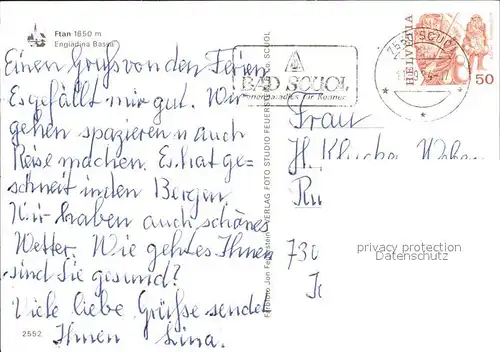 Ftan 1650 m
Engiadina Bassa
Einen Gruß von den Ferien
Es gefällt mir gut. Wir
gehen spazieren u auch
Reise machen. Es hat ge-
schneit in den Bergen
Wir haben auch schönes
Wetter. Wie geht es Ihnen
sind Sie gesund?
Viele liebe Grüße sendet
Ihnen Lina.
2552
VERLAG FOTO STUDIO FEUERSTEIN SCUOL
BAD SCUOL
HELVETIA
50
SCUOL
Frau
H.
Ru
730
privacy protection
Datenschutz